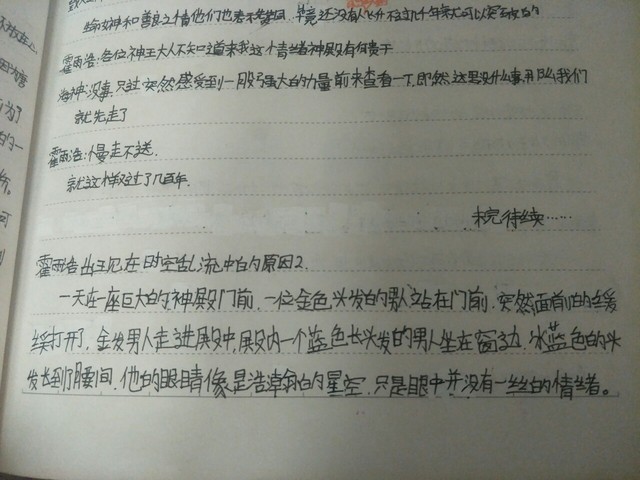 霍雨浩:各位神王大人不知道来我这个情绪神殿有何贵干
海神:没事,只过突然感受到一股强大的力量前来查看一下,即然这里没什么事,那么我们
就先走了
霍雨浩:慢走不送.
就这样又过了几百年.
未完待续……
霍雨浩出现在时空乱流中的原因2.
一天在一座巨大的神殿门前,一位金色头发的男人站在门前,突然面前的缓
缓打开了,金发男人走进殿中,殿内一个蓝色长头发的男人坐在窗边,冰蓝色的头
发长到了腰间,他的眼睛像是浩瀚的星空,只是眼中并没有一丝的情绪。